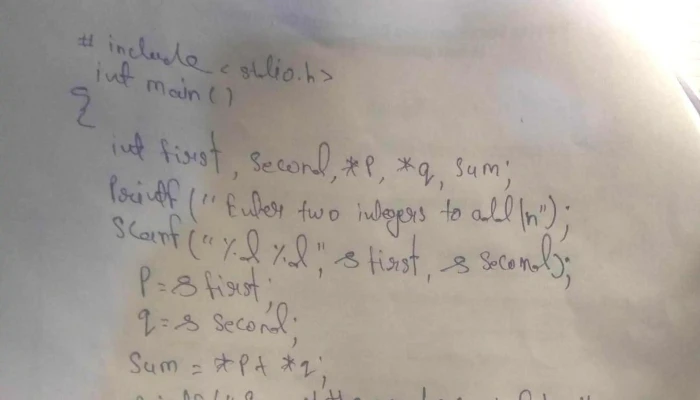 # include <stdio.h>
int main()
{
int first, second, *p, *q, sum;
Printf ("Enter two integers to add \n");
Scanf ("%d %d", & first, & second);
P = & first;
q = & second;
Sum = *p + *q;